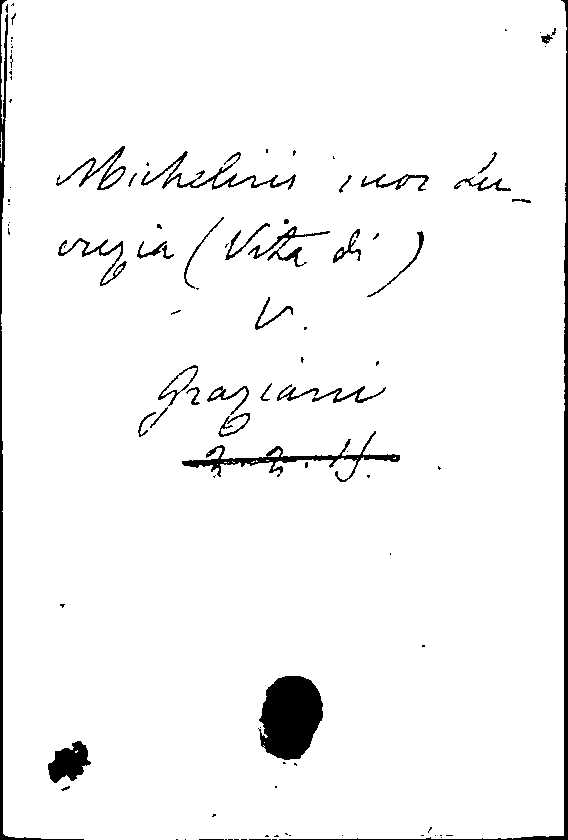 Michelini suor Lu-
crezia (Vita di)
V.
Graziani